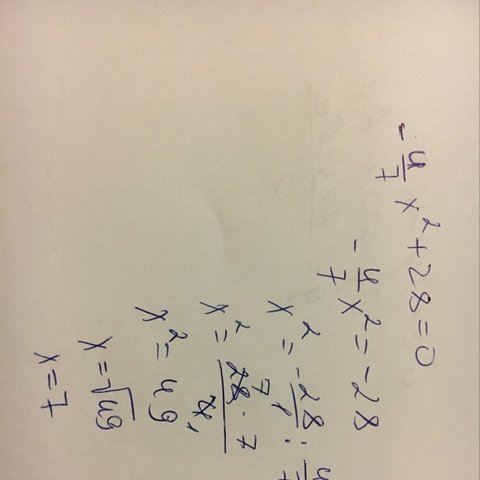 -4/7 x² + 28 = 0
-4/7 x² = -28
x² = -28/1 : 4/7
x² = 28 · 7 / 4
7 1
x² = 49
x = √49
x = 7